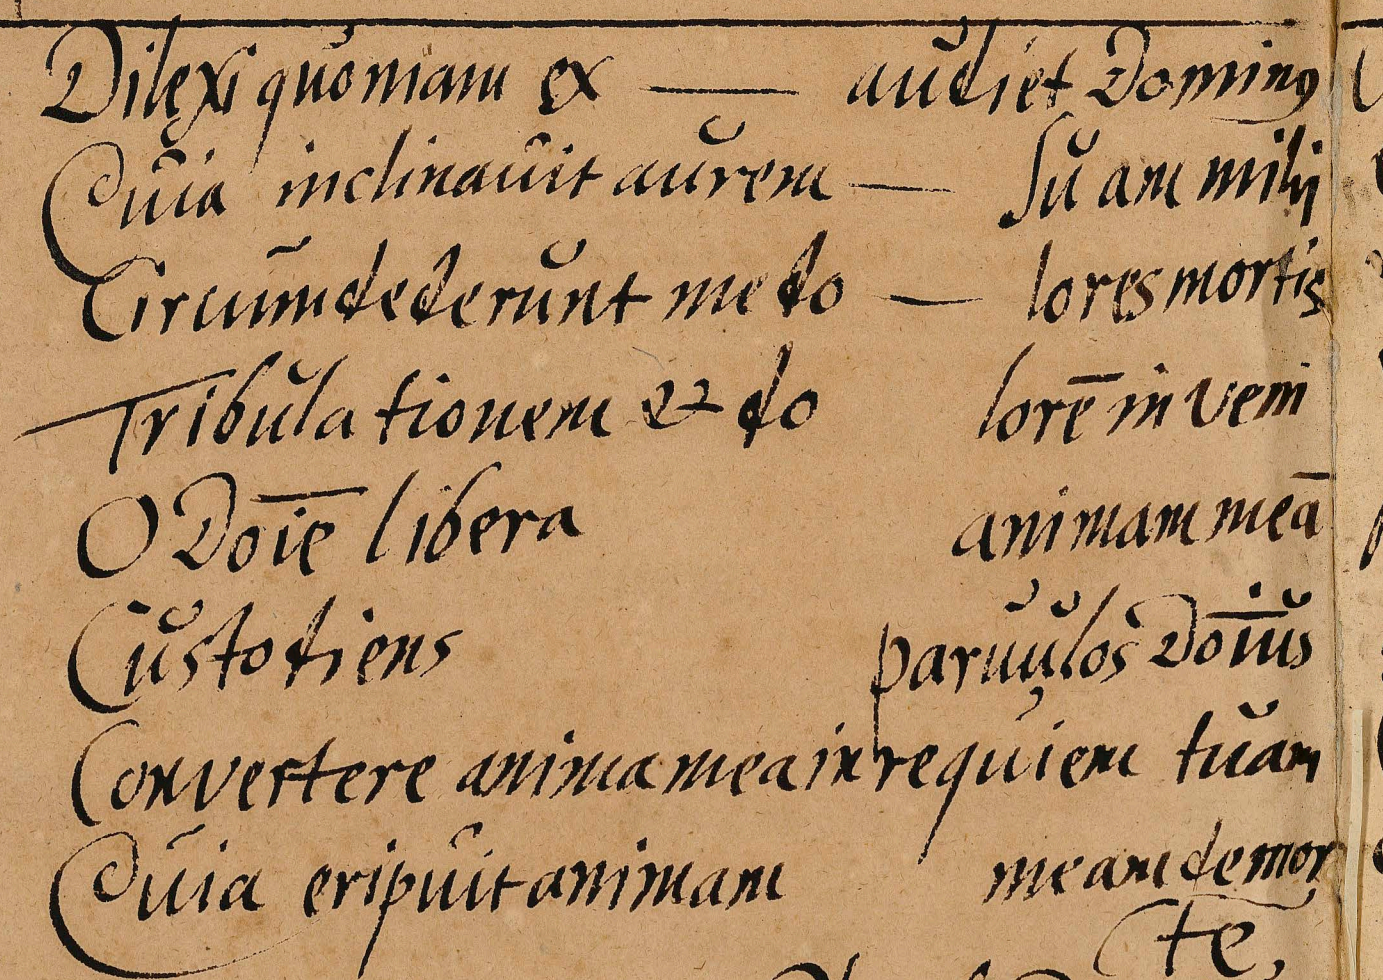 Dilexi quoniam ex — audiet Dominus
Quia inclinavit aurem — suam mihi
Circumdederunt me do — lores mortis
Tribulationem & do lorē inveni
O Doīe libera animam meā
Custodiens parvulos Doīus
Convertere anima mea in requiem tuam
Quia eripuit animam meam de mor
te,